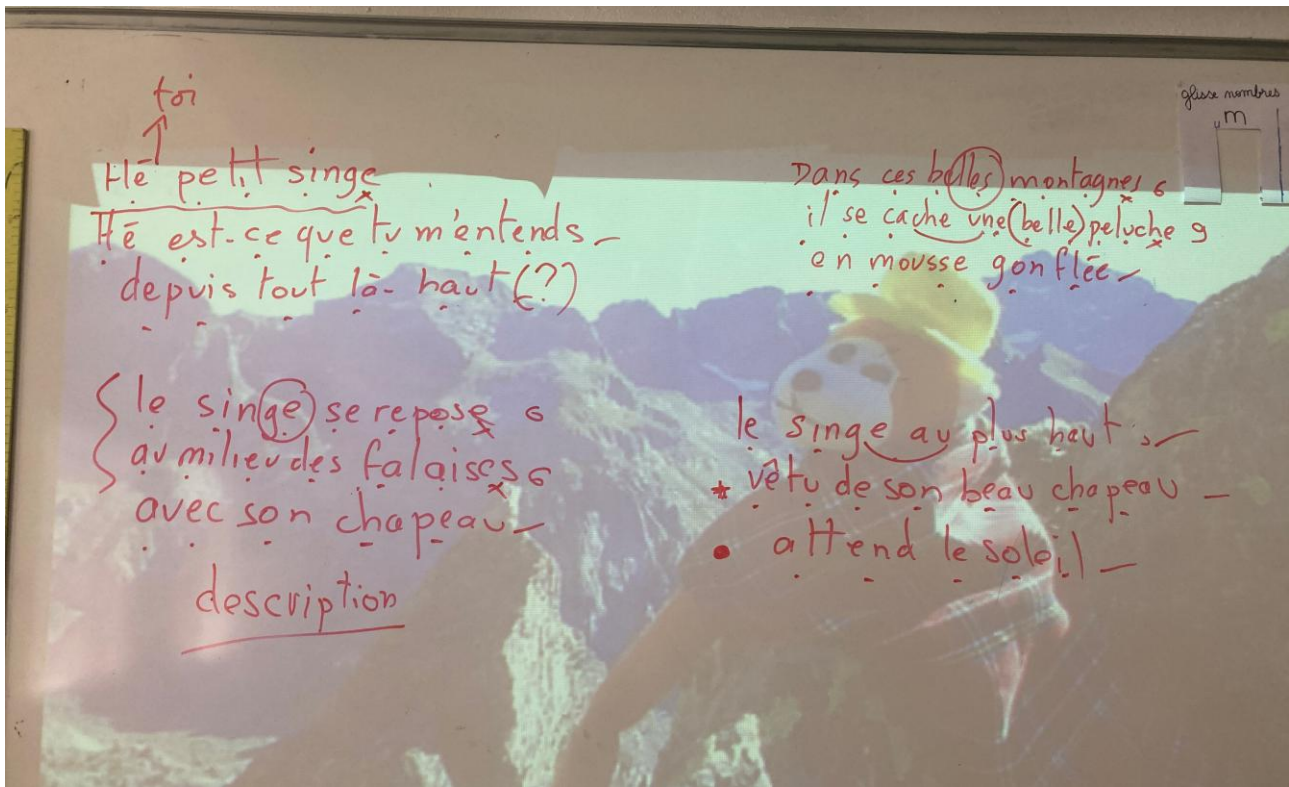 toi
Hé petit singe
Hé est-ce que tu m'entends
depuis tout là-haut (?)
le singe se repose 6
au milieu des falaises 6
avec son chapeau
description
glisse nombres
m
Dans ces belles montagnes 6
il se cache une (belle) peluche 9
en mousse gonflée
le singe au plus haut,
* vêtu de son beau chapeau
• attend le soleil